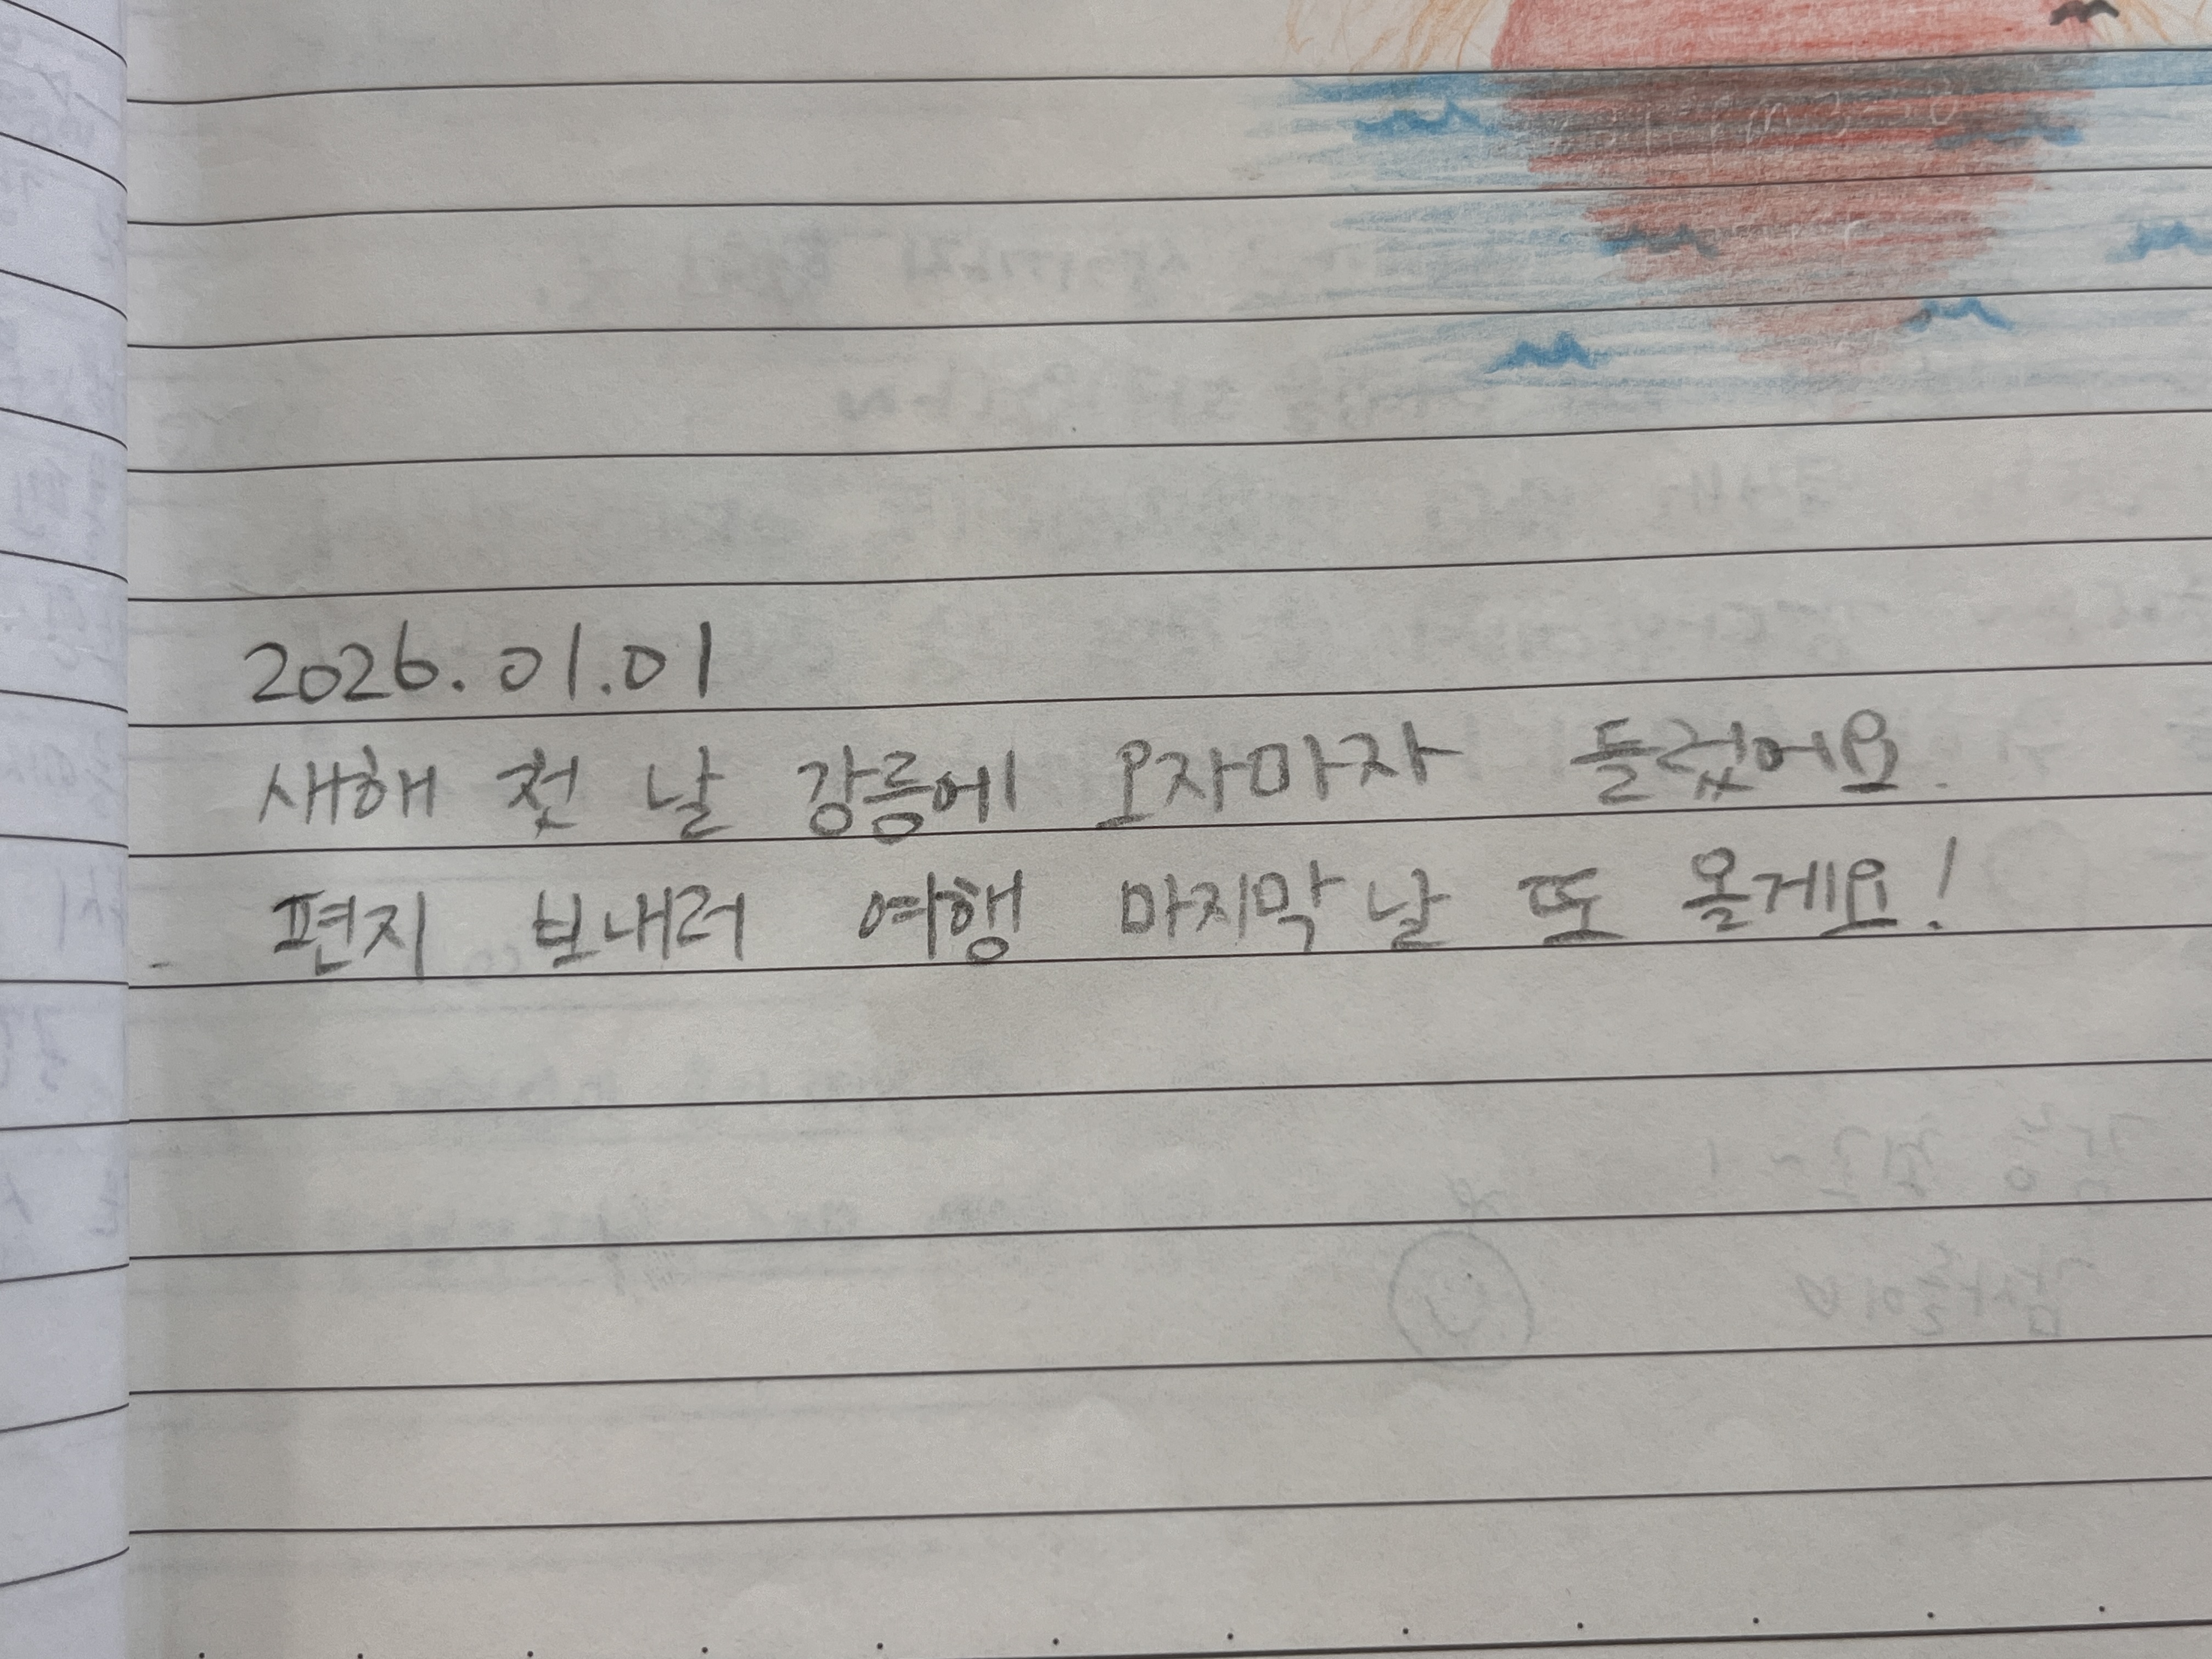 2026.01.01
새해 첫 날 강릉에 오자마자 들렀어요.
편지 보내러 여행 마지막 날 또 올게요!